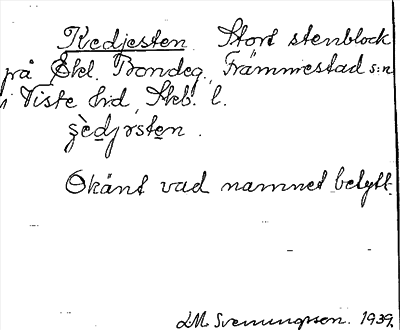 Kedjesten. Stort stenblock
på Ekl. Bondeg., Främmestad s:n
i Viste hd, Skb. l.
Okänt vad namnet betytt.
LM Svenungsson. 1939.